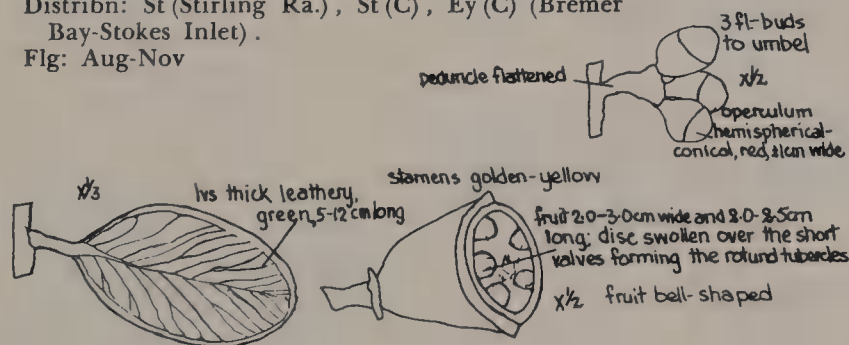 Distribn: St (Stirling Ra.), St (C), Ey (C) (Bremer
Bay-Stokes Inlet).
Flg: Aug-Nov
3 fl-buds
to umbel
peduncle flattened
x½
operculum
hemispherical-
conical, red, ±1cm wide
x⅓
lvs thick leathery,
green, 5-12cm long
stamens golden-yellow
fruit 2.0-3.0cm wide and 2.0-2.5cm
long: disc swollen over the short
valves forming the rotund tubercles
x½ fruit bell-shaped